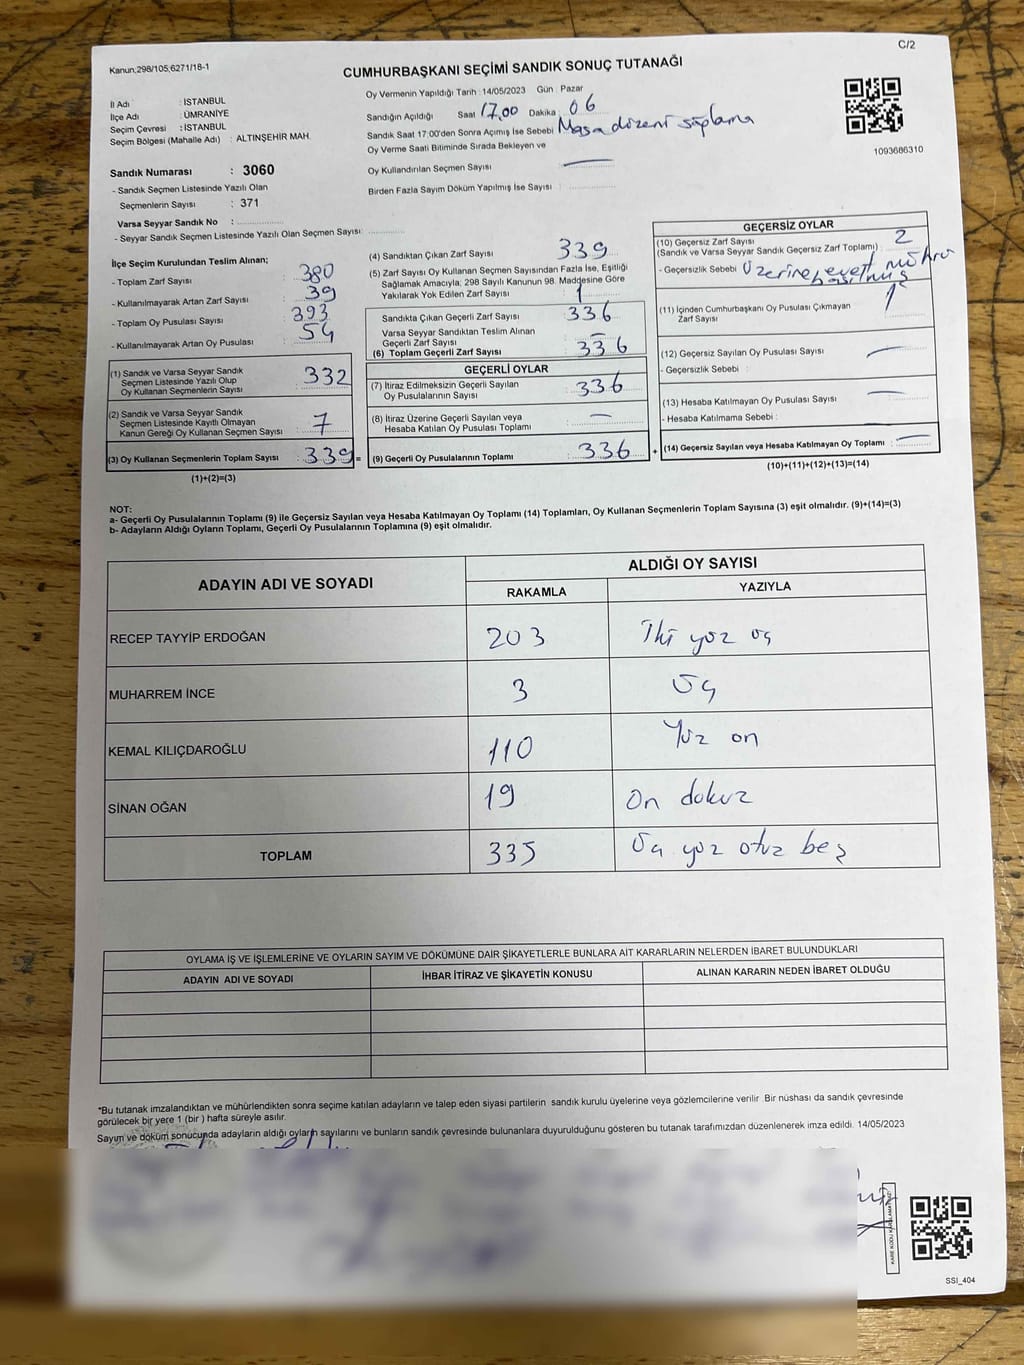 C/2
Kanun;298/105;6271/18-1
CUMHURBAŞKANI SEÇİMİ SANDIK SONUÇ TUTANAĞI
İl Adı : İSTANBUL
İlçe Adı : ÜMRANİYE
Seçim Çevresi : İSTANBUL
Seçim Bölgesi (Mahalle Adı) : ALTINŞEHİR MAH.
Sandık Numarası : 3060
- Sandık Seçmen Listesinde Yazılı Olan
Seçmenlerin Sayısı : 371
Varsa Seyyar Sandık No :
- Seyyar Sandık Seçmen Listesinde Yazılı Olan Seçmen Sayısı:
Oy Vermenin Yapıldığı Tarih : 14/05/2023 Gün : Pazar
Sandığın Açıldığı Saat 17,00 Dakika 06
Sandık Saat 17:00'den Sonra Açımış İse Sebebi Masa düzeni sağlama
Oy Verme Saati Bitiminde Sırada Bekleyen ve
Oy Kullandırılan Seçmen Sayısı
Birden Fazla Sayım Döküm Yapılmış İse Sayısı :
1093686310
İlçe Seçim Kurulundan Teslim Alınan;
- Toplam Zarf Sayısı : 380
- Kullanılmayarak Artan Zarf Sayısı : 39
- Toplam Oy Pusulası Sayısı : 393
- Kullanılmayarak Artan Oy Pusulası : 54
(1) Sandık ve Varsa Seyyar Sandık
Seçmen Listesinde Yazılı Olup
Oy Kullanan Seçmenlerin Sayısı : 332
(2) Sandık ve Varsa Seyyar Sandık
Seçmen Listesinde Kayıtlı Olmayan
Kanun Gereği Oy Kullanan Seçmen Sayısı : 7
(3) Oy Kullanan Seçmenlerin Toplam Sayısı : 339 =
(1)+(2)=(3)
(4) Sandıktan Çıkan Zarf Sayısı : 339
(5) Zarf Sayısı Oy Kullanan Seçmen Sayısından Fazla İse, Eşitliği
Sağlamak Amacıyla; 298 Sayılı Kanunun 98. Maddesine Göre
Yakılarak Yok Edilen Zarf Sayısı : 1
Sandıkta Çıkan Geçerli Zarf Sayısı : 336
Varsa Seyyar Sandıktan Teslim Alınan
Geçerli Zarf Sayısı : –
(6) Toplam Geçerli Zarf Sayısı : 336
GEÇERLİ OYLAR
(7) İtiraz Edilmeksizin Geçerli Sayılan
Oy Pusulalarının Sayısı : 336
(8) İtiraz Üzerine Geçerli Sayılan veya
Hesaba Katılan Oy Pusulası Toplamı : –
(9) Geçerli Oy Pusulalarının Toplamı : 336 +
GEÇERSİZ OYLAR
(10) Geçersiz Zarf Sayısı
(Sandık ve Varsa Seyyar Sandık Geçersiz Zarf Toplamı) : 2
- Geçersizlik Sebebi : Üzerine evet mührü
basılmış
(11) İçinden Cumhurbaşkanı Oy Pusulası Çıkmayan
Zarf Sayısı : 1
(12) Geçersiz Sayılan Oy Pusulası Sayısı : –
- Geçersizlik Sebebi :
(13) Hesaba Katılmayan Oy Pusulası Sayısı : –
- Hesaba Katılmama Sebebi :
(14) Geçersiz Sayılan veya Hesaba Katılmayan Oy Toplamı : –
(10)+(11)+(12)+(13)=(14)
NOT:
a- Geçerli Oy Pusulalarının Toplamı (9) ile Geçersiz Sayılan veya Hesaba Katılmayan Oy Toplamı (14) Toplamları, Oy Kullanan Seçmenlerin Toplam Sayısına (3) eşit olmalıdır. (9)+(14)=(3)
b- Adayların Aldığı Oyların Toplamı, Geçerli Oy Pusulalarının Toplamına (9) eşit olmalıdır.
ADAYIN ADI VE SOYADI
ALDIĞI OY SAYISI
RAKAMLA YAZIYLA
RECEP TAYYİP ERDOĞAN 203 İki yüz üç
MUHARREM İNCE 3 Üç
KEMAL KILIÇDAROĞLU 110 Yüz on
SİNAN OĞAN 19 On dokuz
TOPLAM 335 Üç yüz otuz beş
OYLAMA İŞ VE İŞLEMLERİNE VE OYLARIN SAYIM VE DÖKÜMÜNE DAİR ŞİKAYETLERLE BUNLARA AİT KARARLARIN NELERDEN İBARET BULUNDUKLARI
ADAYIN ADI VE SOYADI İHBAR İTİRAZ VE ŞİKAYETİN KONUSU ALINAN KARARIN NEDEN İBARET OLDUĞU
*Bu tutanak imzalandıktan ve mühürlendikten sonra seçime katılan adayların ve talep eden siyasi partilerin sandık kurulu üyelerine veya gözlemcilerine verilir Bir nüshası da sandık çevresinde
görülecek bir yere 1 (bir ) hafta süreyle asılır.
Sayım ve döküm sonucunda adayların aldığı oyların sayılarını ve bunların sandık çevresinde bulunanlara duyurulduğunu gösteren bu tutanak tarafımızdan düzenlenerek imza edildi. 14/05/2023
KARE KODU KARALAMAYINIZ
SSI_404